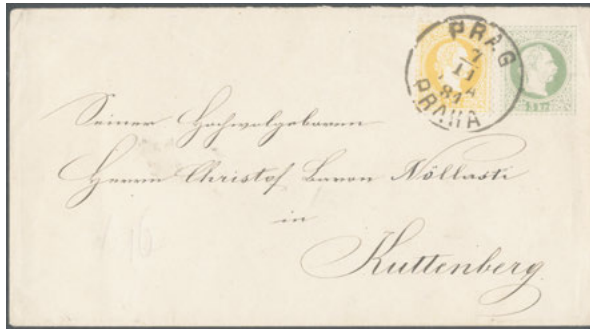 PRAG
7
11
81
PRAHA
3 KR
Seiner Hochwolgeboren
Herrn Christof Baron Nöllasti
in
Kuttenberg